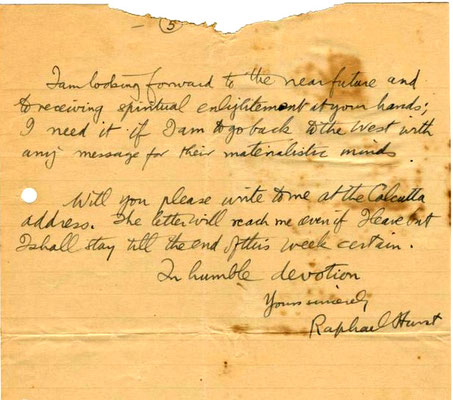 – (5)
I am looking forward to the near future and
to receiving spiritual enlightement at your hands;
I need it if I am to go back to the West with
any message for their materialistic minds.
Will you please write to me at the Calcutta
address. The letter will reach me even if I leave but
I shall stay till the end of this week certain.
In humble devotion
Yours sincerely
Raphael Hurst